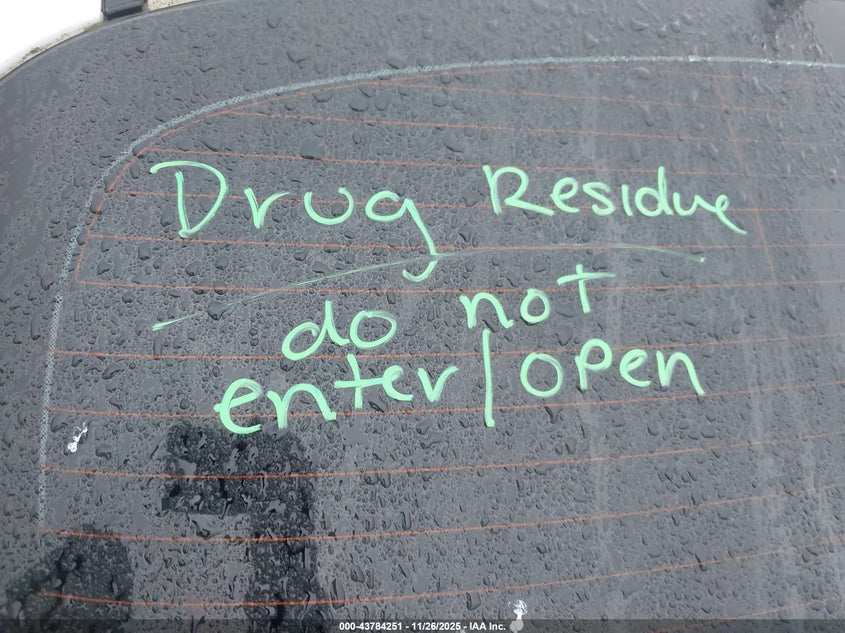 Drug Residue
do not
enter/open
000-43784251 - 11/26/2025 - IAA Inc.